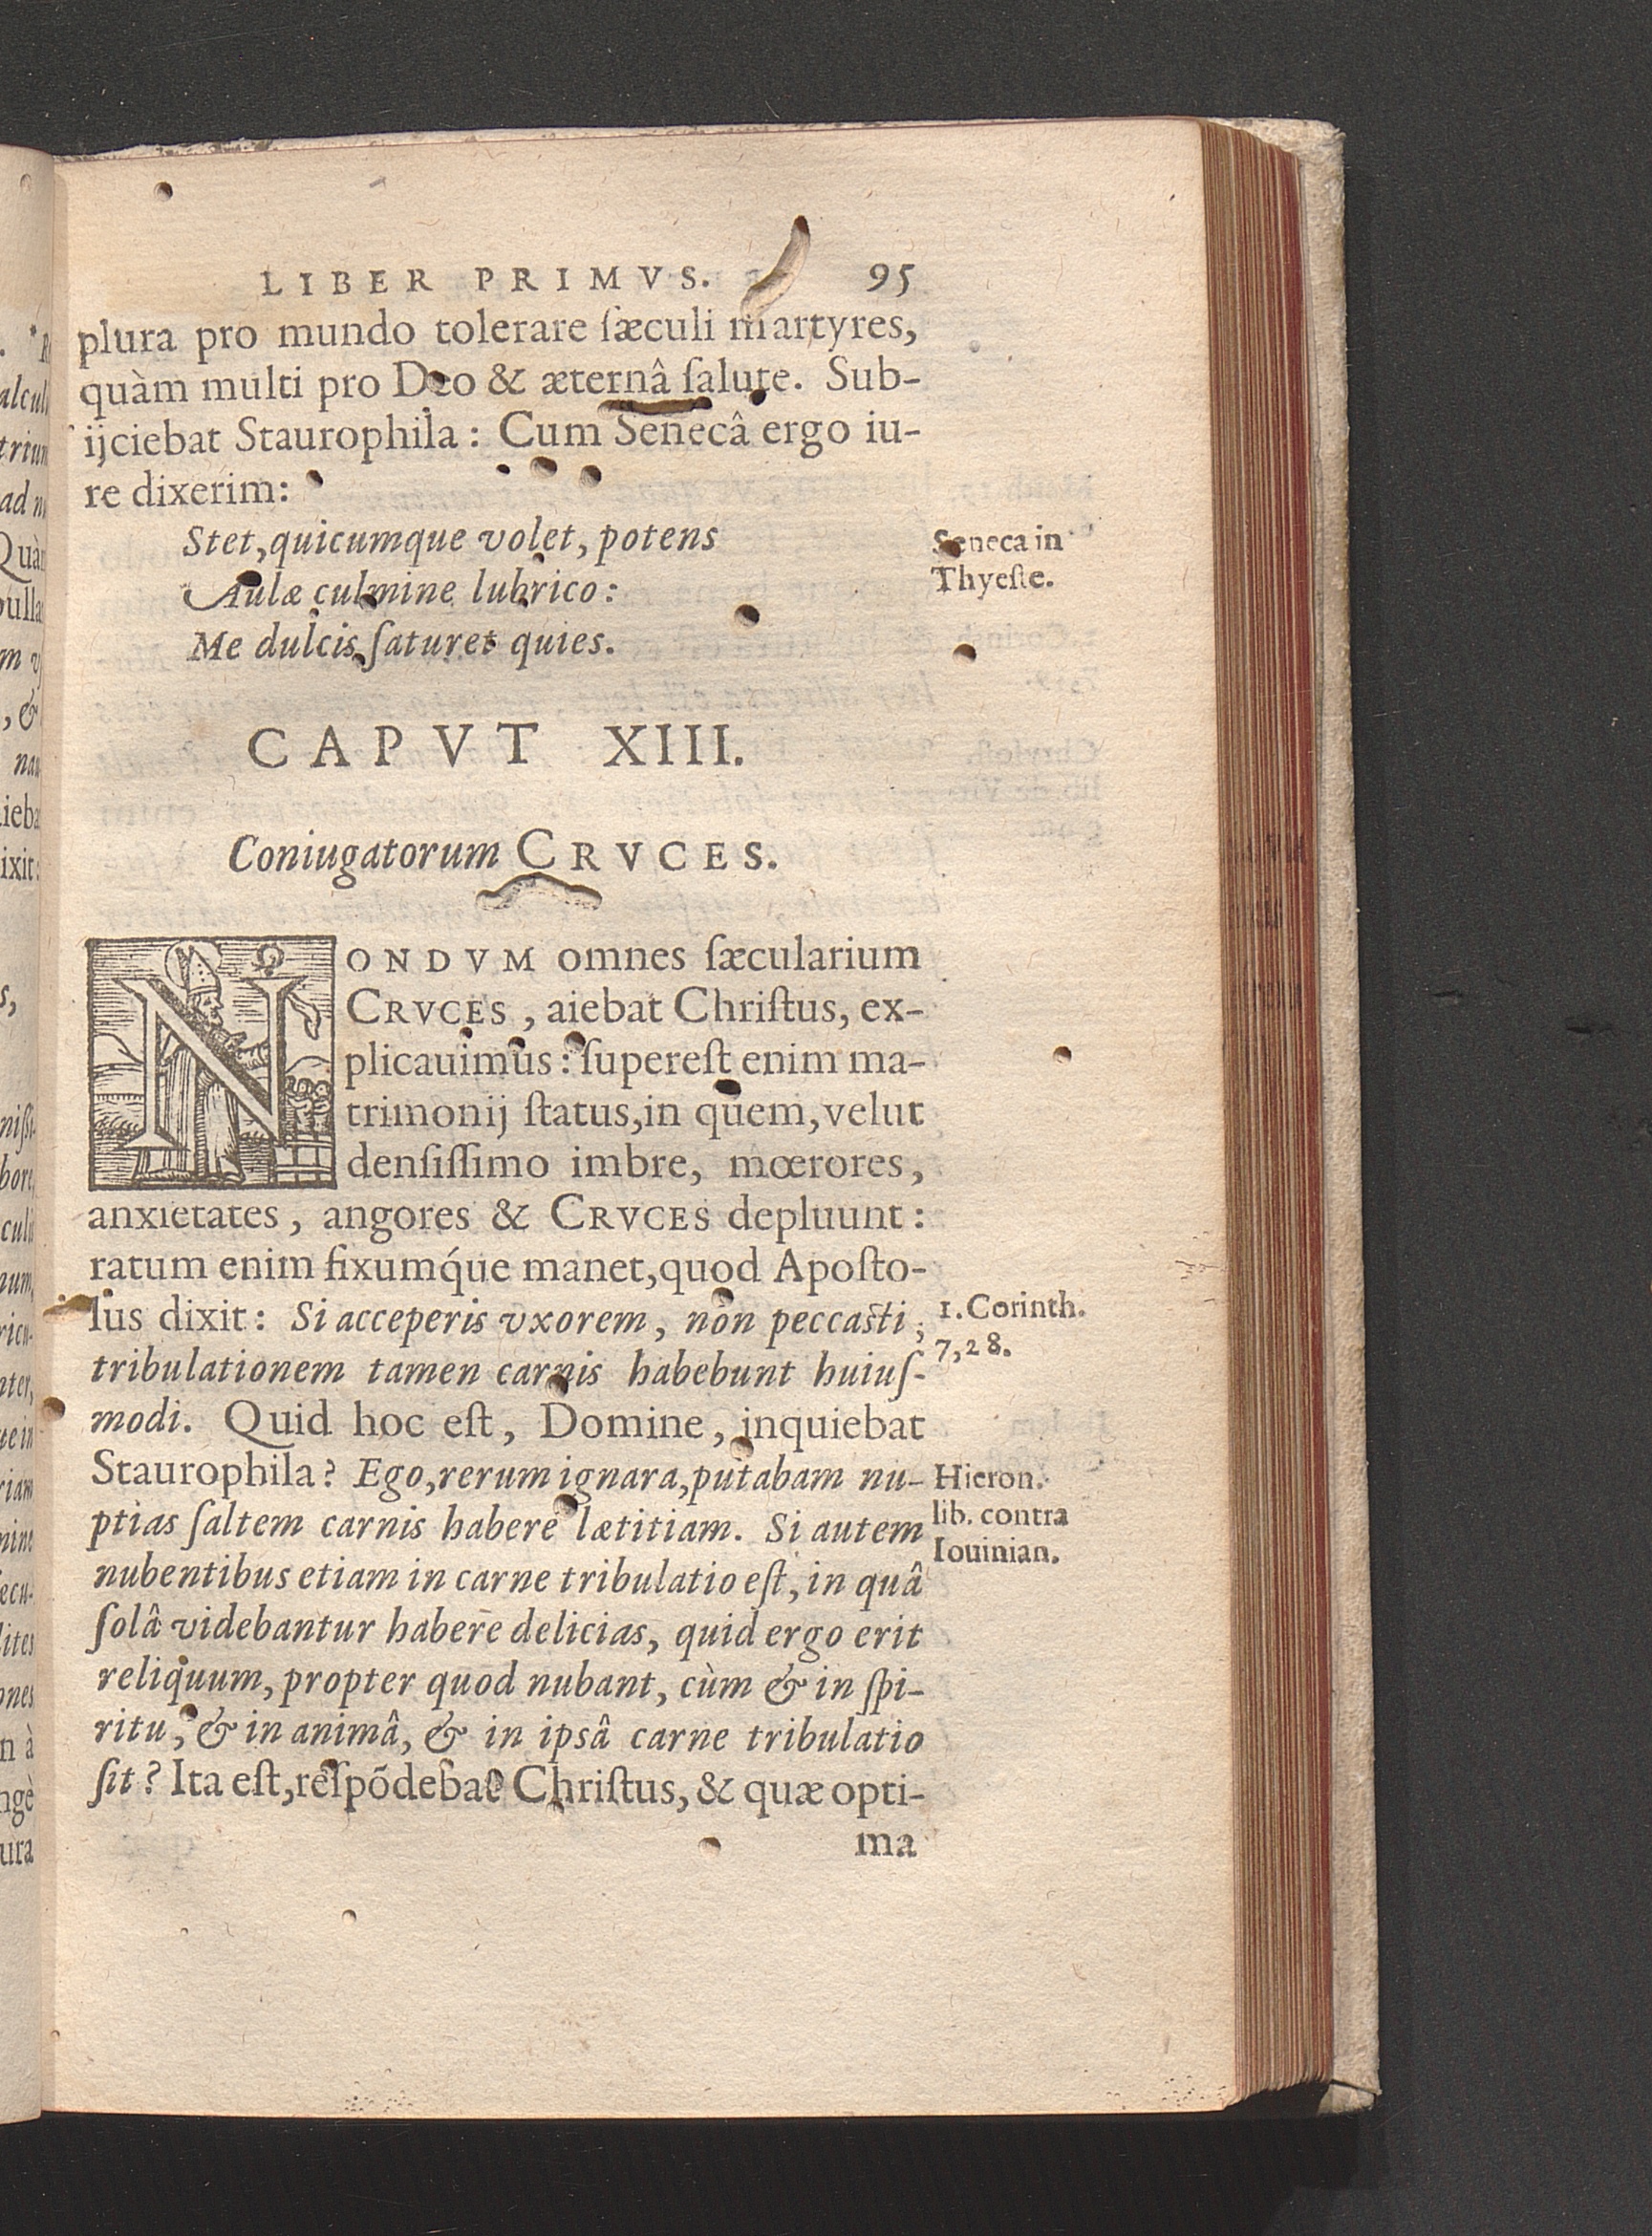 LIBER PRIMVS. 95
plura pro mundo tolerare ſæculi martyres,
quàm multi pro Deo & æternâ ſalute. Sub-
ijciebat Staurophila: Cum Senecâ ergo iu-
re dixerim:
Stet, quicumque volet, potens
Aulæ culmine lubrico:
Me dulcis ſaturet quies.
Seneca in
Thyeſte.
CAPVT XIII.
Coniugatorum CRVCES.
NONDVM omnes ſæcularium
CRVCES, aiebat Chriſtus, ex-
plicauimus: ſupereſt enim ma-
trimonij ſtatus, in quem, velut
denſiſſimo imbre, mœrores,
anxietates, angores & CRVCES depluunt:
ratum enim fixumq́ue manet, quod Apoſto-
lus dixit: Si acceperis vxorem, non peccaſti;
tribulationem tamen carnis habebunt huiuſ-
modi. Quid hoc eſt, Domine, inquiebat
Staurophila? Ego, rerum ignara, putabam nu-
ptias ſaltem carnis habere lætitiam. Si autem
nubentibus etiam in carne tribulatio eſt, in quâ
ſolâ videbantur habere delicias, quid ergo erit
reliquum, propter quod nubant, cùm & in ſpi-
ritu, & in animâ, & in ipsâ carne tribulatio
ſit? Ita eſt, reſpõdebat Chriſtus, & quæ opti-
ma
1. Corinth.
7,28.
Hieron.
lib. contra
Iouinian.
alcul
trium
ad n
Quàm
nam
ixit:
s,
bore,
num,
nter,
riam
mine
ſecu-
lites
ones
n à
ngè
ura